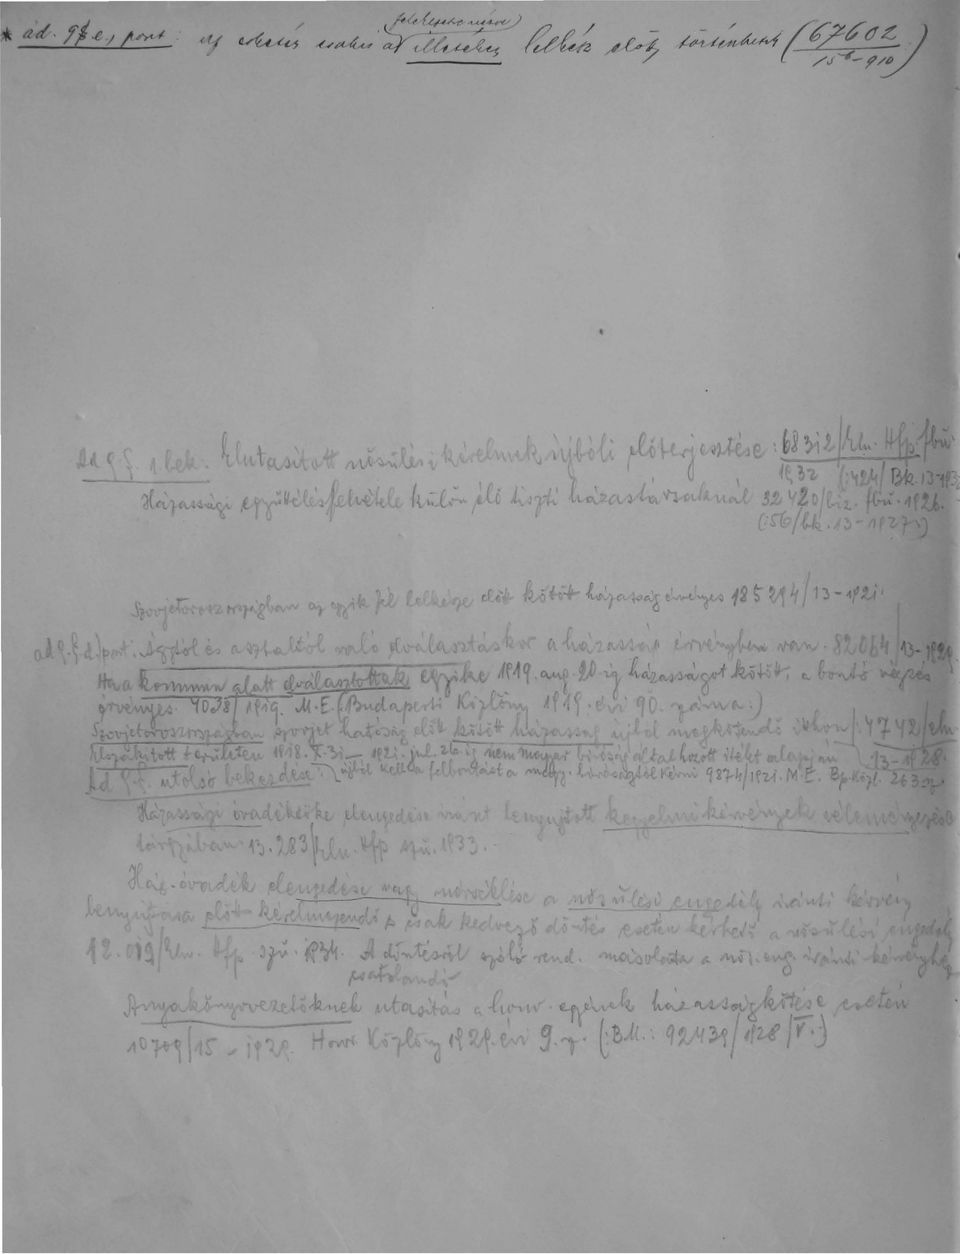 * ad. 9§ e, pont: az eskütés csakis az illetékes lelkész előtt történhetik (67602
15b-910)
Ad 9 §. 1. bek. Elutasított nősülési kérelmek újbóli előterjesztése: 68312/Eln. Hfp. fbü.
1932 (:424/Bk. 13-193
Házassági együttélés felvétele külön élő tiszti házastársaknál 32420/biz. fbü. 1926.
(:56/bk. 13-1927:)
Szovjetoroszországban az egyik fél lelkésze előtt kötött házasság érvényes 185294/13-1921.
ad 9. §. d.) pont. Ágytól és asztaltól való elválasztáskor a házasság érvényben van. 82064/13-1920.
Ha a kommun alatt elválasztottak egyike 1919. aug. 20-ig házasságot kötött, a bontó végzés
érvényes. 4038/1919. M.E. (:Budapesti Közlöny 1919. évi 90. száma:)
Szovjetoroszországban szovjet hatóság előtt kötött házasság újból megkötendő itthon 4742/eln.
13-1928.
Elszakított területen 1918. X. 31 – 1921. jul. 26-ig nem magyar bíróság által hozott ítélet alapján
újból kell a felbontást a magy. bíróságtól kérni 9874/1921. M.E. Bp. Közl. 263
Ad 9. §. utolsó bekezdése:
Házassági óvadéktőke elengedése iránt benyujtott kegyelmi kérvények véleményezése
tárgyában 13.283/Eln. Hfp szü. 1933. -
Ház-óvadék elengedése vagy mérséklése a nősülési engedély iránti kérvény
benyujtása előtt kérelmezendő s csak kedvező döntés esetén kérhető a nősülési engedély
12.019/Eln. Hfp. szü. 1934. A döntésről szóló rend. másolata a nős. eng. iránti kérvényhez
csatolandó
Anyakönyvvezetőknek utasítás a honv. egyének házasságkötése esetén
10709/15 - 1929. Honv. Közlöny 1929. évi 9. sz. (:BM.: 92439/1928/V.:)